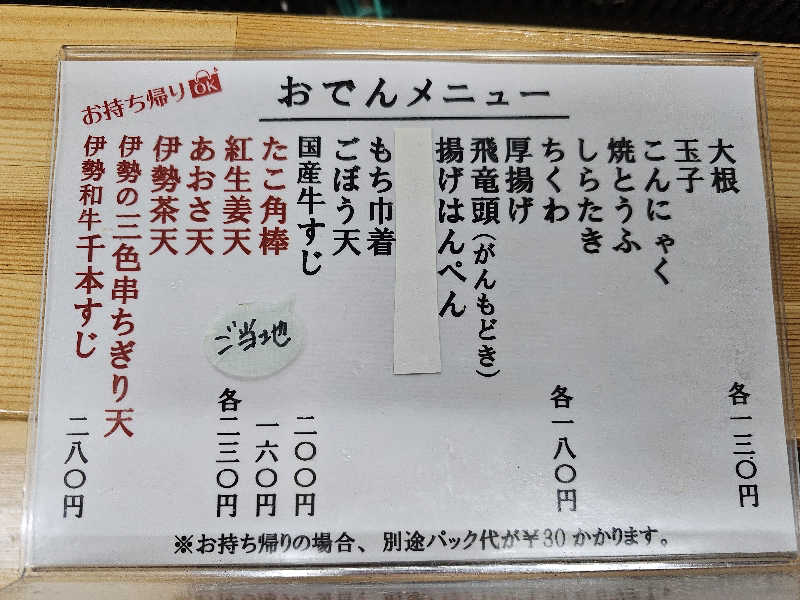 お持ち帰り OK
おでんメニュー
大根
玉子
こんにゃく
焼とうふ
しらたき
各一三〇円
ちくわ
厚揚げ
飛竜頭(がんもどき)
揚げはんぺん
もち巾着
ごぼう天
各一八〇円
国産牛すじ
二〇〇円
たこ角棒
一六〇円
紅生姜天
あおさ天
伊勢茶天
伊勢の三色串ちぎり天
各二三〇円
伊勢和牛千本すじ
二八〇円
ご当地
※お持ち帰りの場合、別途パック代が¥30かかります。